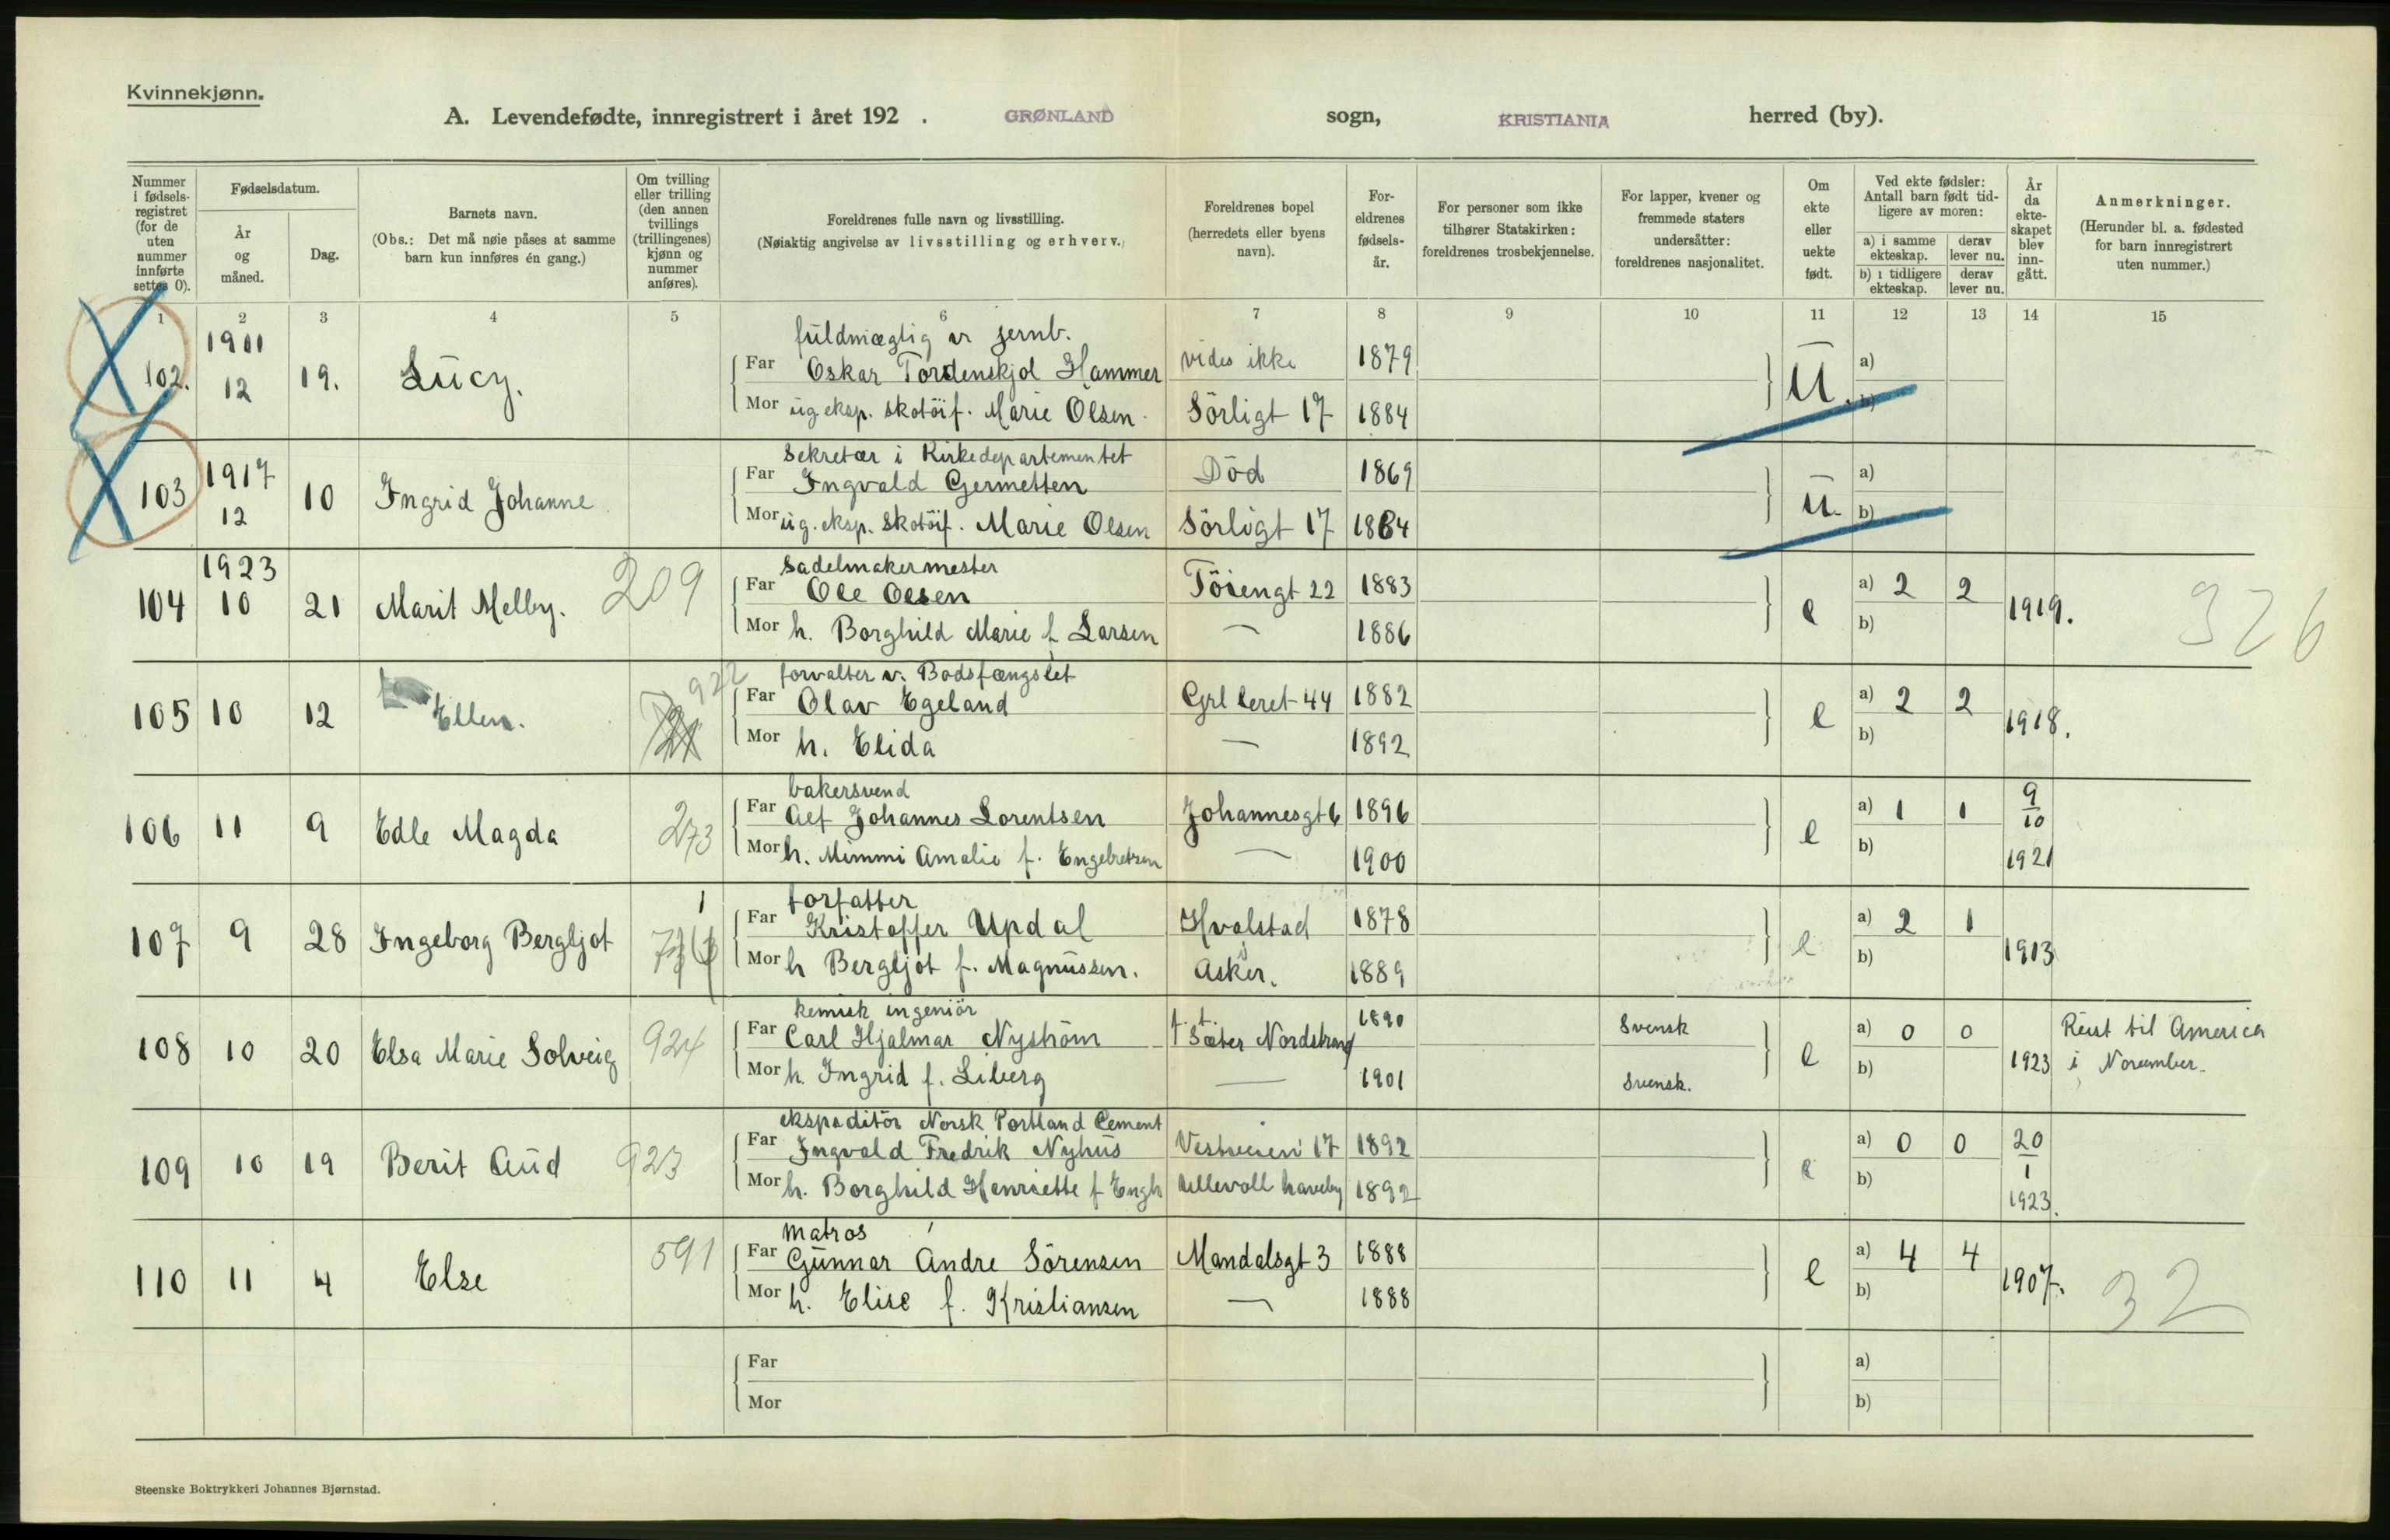 Kvinnekjønn.
A. Levendefødte, innregistrert i året 192 . GRØNLAND sogn, KRISTIANIA herred (by).
Nummer i fødsels- registret (for de uten nummer innførte settes 0).
Fødselsdatum.
År og måned.
Dag.
Barnets navn.
(Obs.: Det må nøie påses at samme barn kun innføres én gang.)
Om tvilling eller trilling (den annen tvillings (trillingenes) kjønn og nummer anføres).
Foreldrenes fulle navn og livsstilling.
(Nøiaktig angivelse av livsstilling og erhverv.)
Foreldrenes bopel (herredets eller byens navn).
For- eldrenes fødsels- år.
For personer som ikke tilhører Statskirken: foreldrenes trosbekjennelse.
For lapper, kvener og fremmede staters undersåtter: foreldrenes nasjonalitet.
Om ekte eller uekte født.
Ved ekte fødsler: Antall barn født tid- ligere av moren:
a) i samme ekteskap.
derav lever nu.
b) i tidligere ekteskap.
derav lever nu.
År da ekte- skapet blev inn- gått.
Anmerkninger.
(Herunder bl. a. fødested for barn innregistrert uten nummer.)
1 2 3 4 5 6 7 8 9 10 11 12 13 14 15
fuldmægtig v jernb.
102. 1911 12 19. Lucy. Far Oskar Tordenskjol Hammer vides ikke 1879 U. a)
Mor ug eksp. skotöif. Marie Olsen Sörligt 17 1884 b)
Sekretær i Kirkedepartementet
103 1917 12 10 Ingrid Johanne Far Ingvald Germetten Död 1869 U. a)
Mor ug. eksp. skotöif. Marie Olsen Sörligt 17 1884 b)
sadelmakermester
104 1923 10 21 Marit Melby. 209 Far Ole Olsen Töiengt 22 1883 e a) 2 2 1919. 326
Mor h. Borghild Marie f Larsen — 1886 b)
forvalter v. Bodsfængslet
105 10 12 Ellen. 922 Far Olav Egeland Grl leret 44 1882 e a) 2 2 1918.
Mor h. Elida — 1892 b)
bakersvend
106 11 9 Edle Magda 273 Far Alf Johannes Lorentsen Johannesgt 6 1896 e a) 1 1 9/10 1921
Mor h. Mimmi Amalie f. Engebretsen — 1900 b)
forfatter
107 9 28 Ingeborg Bergljot 1 Far Kristoffer Updal Hvalstad 1878 e a) 2 1 1913
Mor h Bergljot f. Magnussen. Asker. 1889 b)
kemisk ingeniör
108 10 20 Elsa Marie Solveig 924 Far Carl Hjalmar Nyström t. t. Sæter Nordstrand 1890 Svensk e a) 0 0 1923 Reist til America
Mor h. Ingrid f. Liberg — 1901 Svensk. b) i November.
ekspeditör Norsk Portland Cement
109 10 19 Berit Aud 923 Far Ingvald Fredrik Nyhus Vestveien 17 1892 e a) 0 0 20/1 1923.
Mor h. Borghild Henriette f Engh Ullevoll haveby 1892 b)
matros
110 11 4 Else 591 Far Gunnar Andre Sörensen Mandalsgt 3 1888 e a) 4 4 1907. 32
Mor h. Elise f. Kristiansen — 1888 b)
Far a)
Mor b)
Steenske Boktrykkeri Johannes Bjørnstad.